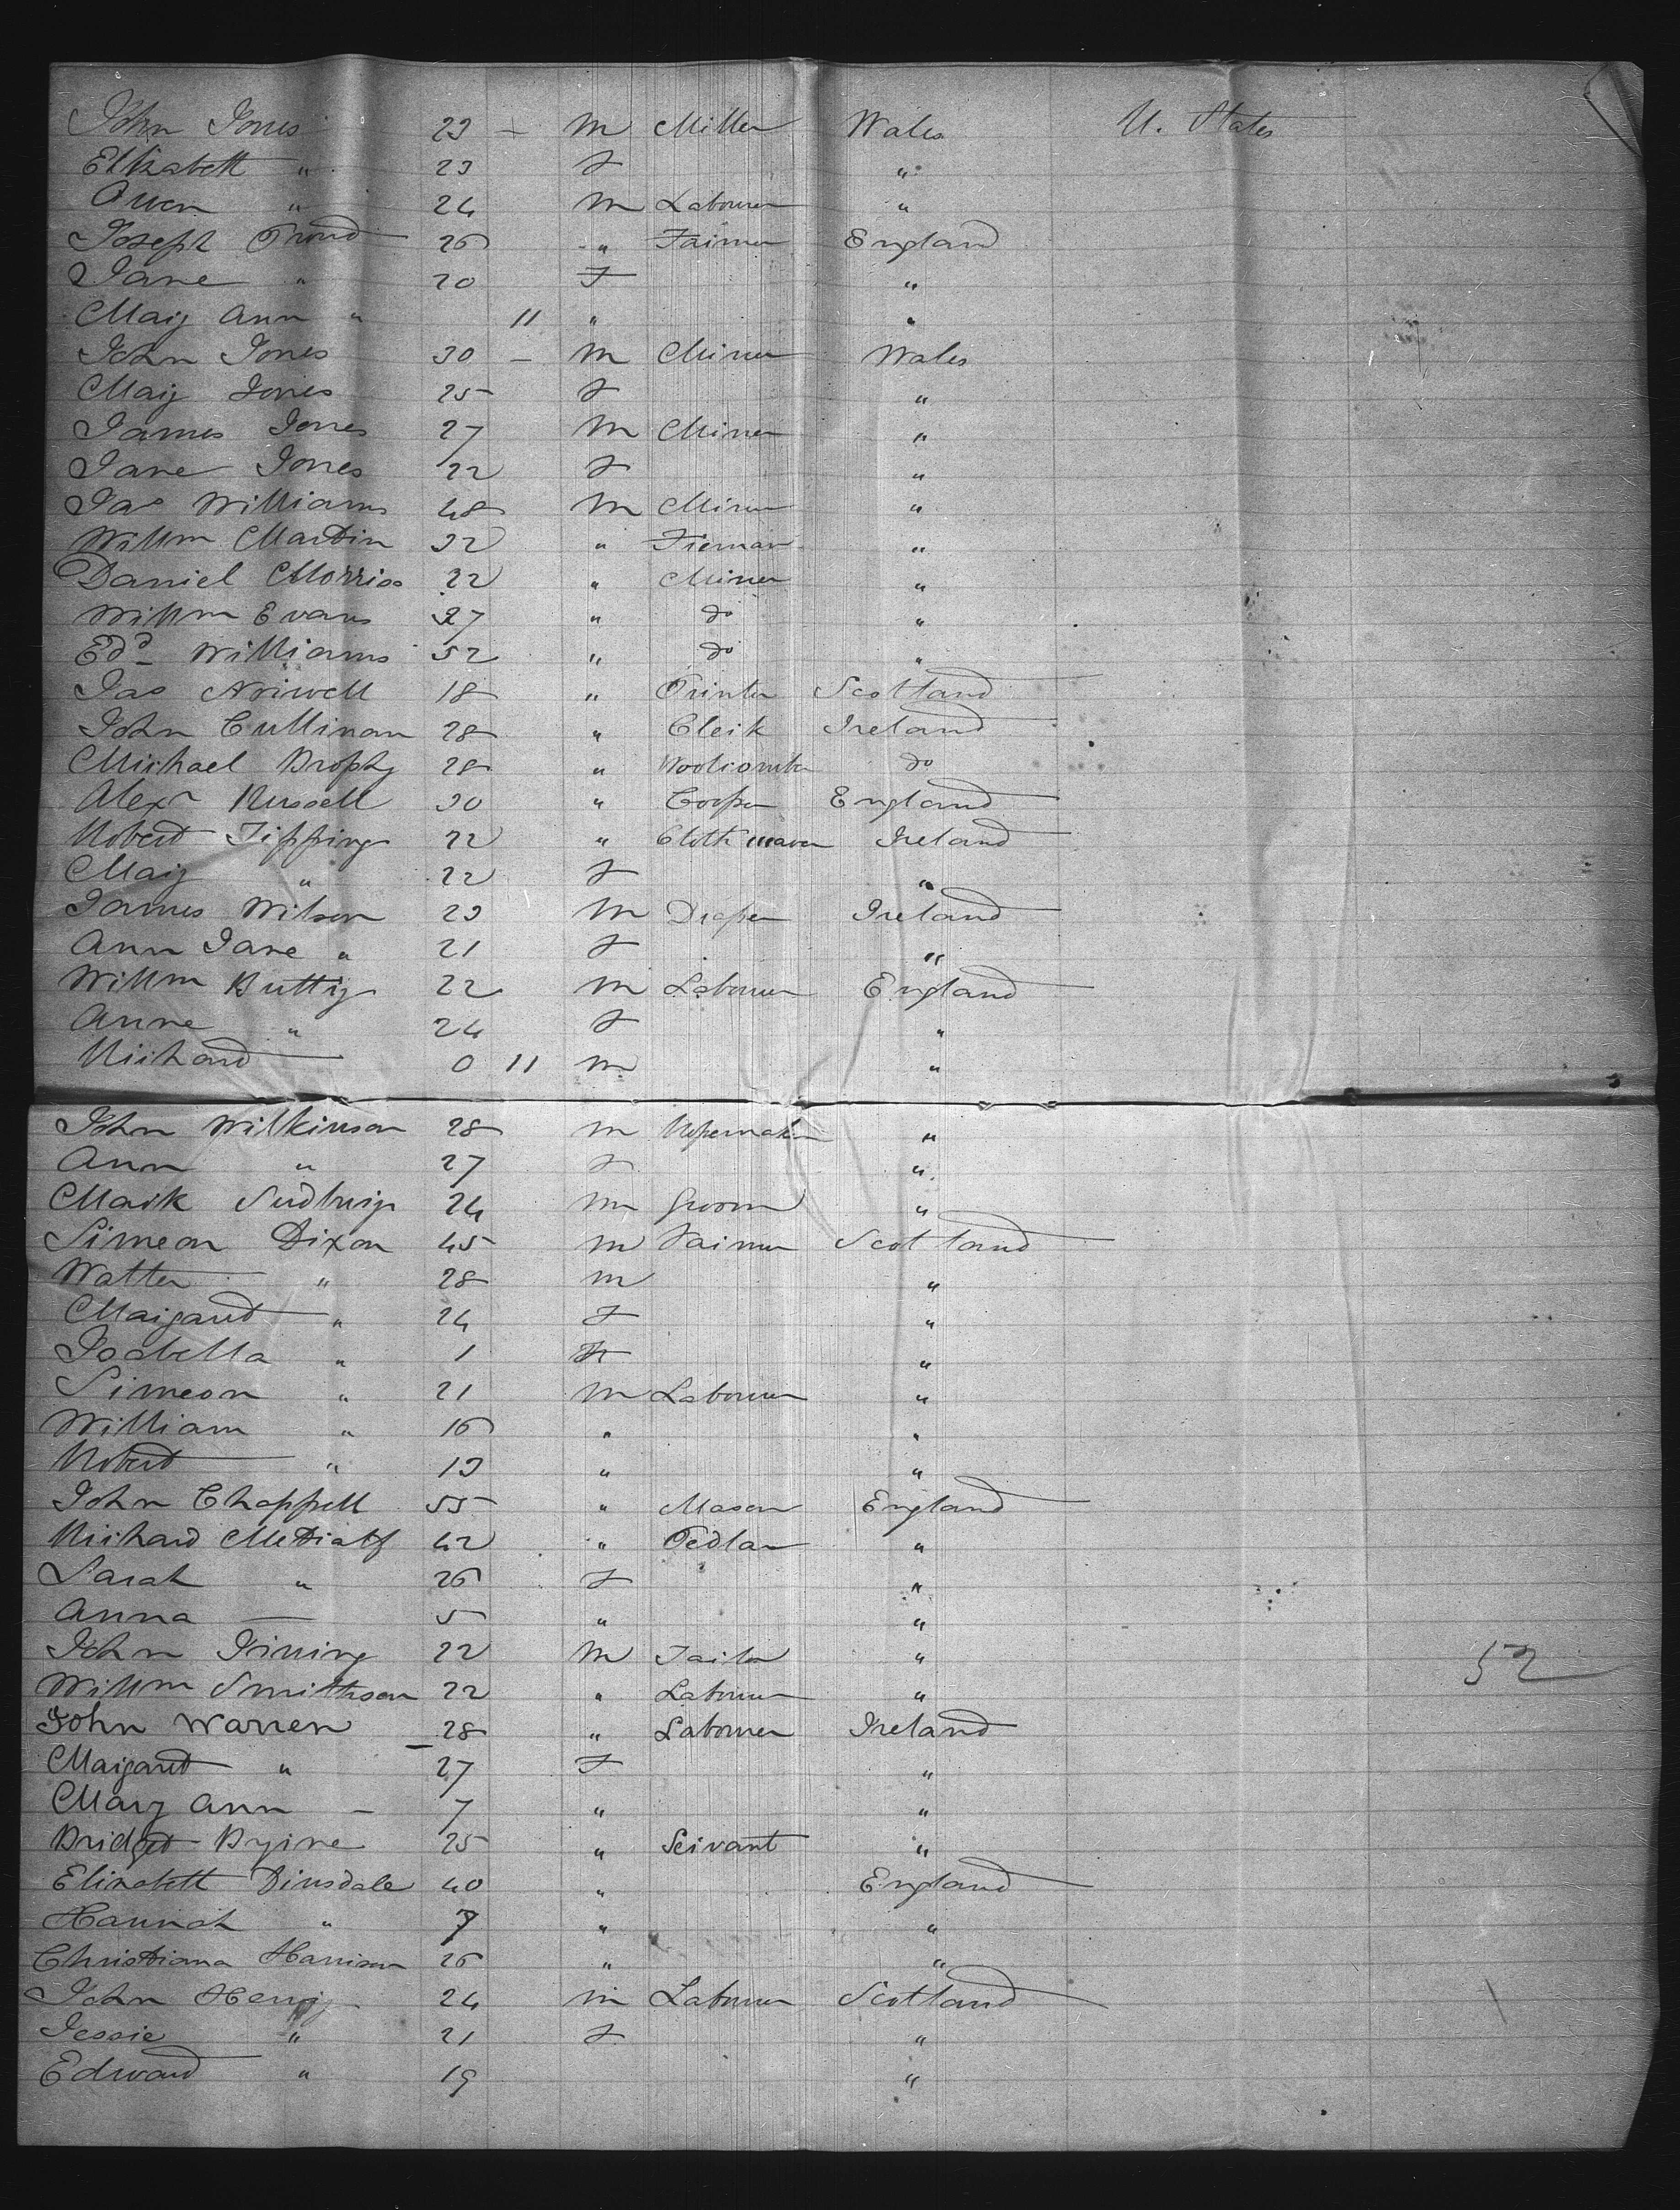 John Jones 23 — M Miller Wales U. States
Elizabeth " 23 F "
Owen " 24 M Labourer "
Joseph Proud 26 " Farmer England
Jane " 20 F "
Mary Ann " 11 " "
John Jones 30 — M Miner Wales
Mary Jones 25 F "
James Jones 27 M Miner "
Jane Jones 22 F "
Jas Williams 48 M Miner "
Willm Martin 32 " Fireman "
Daniel Morriss 22 " Miner "
Willm Evans 27 " do "
Edd Williams 52 " do "
Jas 18 " Printer Scotland
John Cullinan 28 " Clerk Ireland
Michael Brophy 28 " Woolcomber do
Alexr Russell 30 " Cooper England
Robert Tipping 22 " Cloth weaver Ireland
Mary " 22 F "
James Wilson 23 M Draper Ireland
Ann Jane " 21 F "
Willm 22 M Labourer England
Anne " 24 F "
Richard — 0 11 M "
John Wilkinson 28 M Ropemaker "
Ann " 27 F "
Mark 24 M Groom "
Simeon Dixon 45 M Farmer Scotland
Walter " 28 M "
Margaret " 24 F "
Isabella " 1 F "
Simeon " 21 M Labourer "
William " 16 " "
Robert " 13 " "
John Chappell 55 " Mason England
Richard Metcalf 42 " Pedlar "
Sarah " 26 F "
Anna — 5 " "
John 22 M Tailor "
Willm Smithson 22 " Labourer "
John Warren 28 " Labourer Ireland
Margaret " 27 F "
Mary Ann — 7 " "
Bridget Byrne 25 " Servant "
Elizabeth Dinsdale 40 " England
Hannah " 7 " "
Christiana Harrison 26 " "
John Henry 24 M Labourer Scotland
Jessie " 21 F "
Edward " 19 "
52